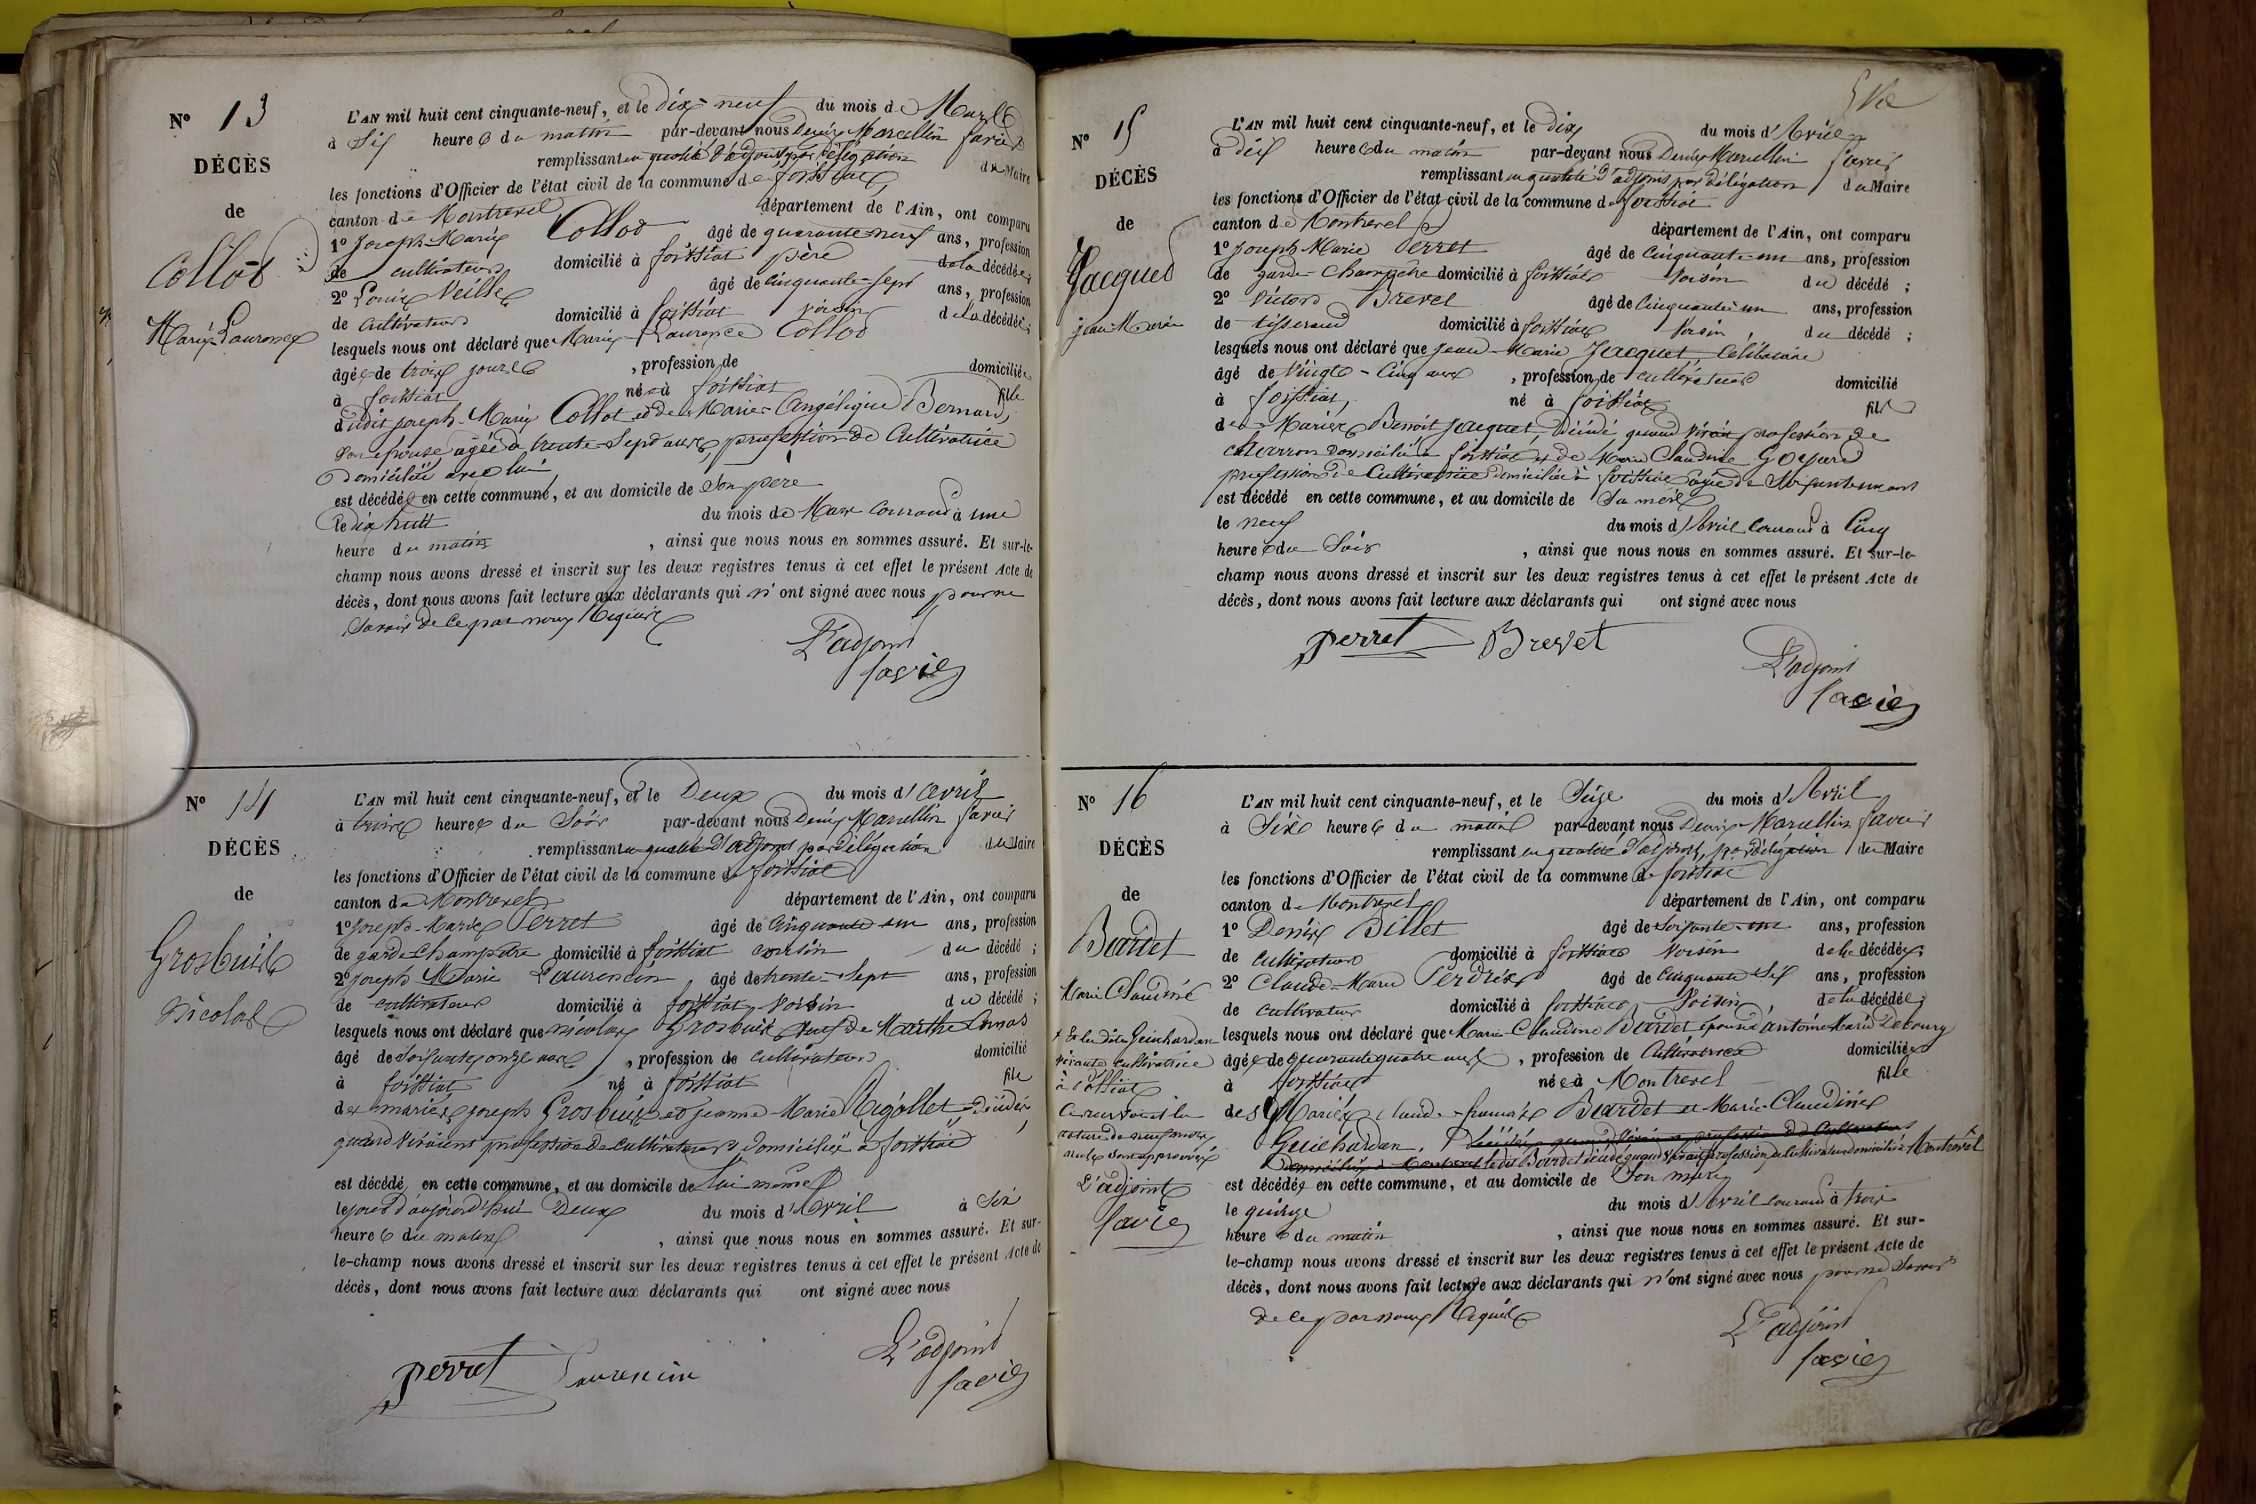 N° 13
DÉCÈS
de
Collot
Marie Laurence
L'AN mil huit cent cinquante-neuf, et le dix-neuf du mois de Mars
à Six heures du matin par-devant nous Denis Marcellin favier
remplissant en qualité d'adjoint par délégation du Maire
les fonctions d'Officier de l'état civil de la commune de foissiat
canton de Montrevel département de l'Ain, ont comparu
1° Joseph-Marie Collot âgé de quarante-neuf ans, profession
de cultivateur domicilié à foissiat père de la décédée ;
2° Louis Veille âgé de cinquante-sept ans, profession
de cultivateur domicilié à foissiat voisin de la décédée ;
lesquels nous ont déclaré que Marie-Laurence Collot
âgée de trois jours , profession de domiciliée
à foissiat née à foissiat fille
dudit joseph-Marie Collot et de Marie-Angélique Bernard,
son épouse âgée de trente-sept ans, profession de Cultivatrice
Domiciliée avec lui
est décédée en cette commune, et au domicile de Son père
le dix huit du mois de Mars courant à une
heure du matin , ainsi que nous nous en sommes assuré. Et sur-le-
champ nous avons dressé et inscrit sur les deux registres tenus à cet effet le présent Acte de
décès, dont nous avons fait lecture aux déclarants qui n'ont signé avec nous pour ne
Savoir de ce par nous Requis
L'adjoint
favier
N° 14
DÉCÈS
de
Grosbuis
Nicolas
L'AN mil huit cent cinquante-neuf, et le Deux du mois d'avril
à trois heures du Soir par-devant nous Denis Marcellin favier
remplissant en qualité d'adjoint par délégation du Maire
les fonctions d'Officier de l'état civil de la commune de foissiat
canton de Montrevel département de l'Ain, ont comparu
1° joseph-Marie Perret âgé de Cinquante un ans, profession
de garde champêtre domicilié à foissiat voisin du décédé ;
2° joseph Marie Laurencin âgé de trente-sept ans, profession
de cultivateur domicilié à foissiat voisin du décédé ;
lesquels nous ont déclaré que nicolas Grosbuis veuf de Marthe
âgé de Soixante onze ans , profession de cultivateur domicilié
à foissiat né à foissiat fils
des mariés joseph Grosbuis et jeanne Marie Rigollet, décédés
quand vivaient profession de cultivateurs, domiciliés à foissiat
est décédé en cette commune, et au domicile de Lui même
le jour d'aujourd'hui Deux du mois d'Avril à Six
heures du matin , ainsi que nous nous en sommes assuré. Et sur-
le-champ nous avons dressé et inscrit sur les deux registres tenus à cet effet le présent Acte de
décès, dont nous avons fait lecture aux déclarants qui ont signé avec nous
perret Laurencin
L'adjoint
favier
N° 15
DÉCÈS
de
Jacquet
jean-Marie
L'AN mil huit cent cinquante-neuf, et le dix du mois d'Avril
à dix heures du matin par-devant nous Denis Marcellin favier
remplissant en qualité d'adjoint par délégation du Maire
les fonctions d'Officier de l'état civil de la commune de foissiat
canton de Montrevel département de l'Ain, ont comparu
1° joseph-Marie Perret âgé de cinquante-un ans, profession
de garde-Champêtre domicilié à foissiat voisin du décédé ;
2° Victor Brevet âgé de Cinquante-un ans, profession
de tisserand domicilié à foissiat voisin du décédé ;
lesquels nous ont déclaré que jean-Marie Jacquet, Célibataire
âgé de vingt-cinq ans , profession de cultivateur domicilié
à foissiat né à foissiat fils
des Mariés Benoit Jacquet, décédé quand vivait profession de
charron domicilié à foissiat et de Marie Claudine Goyard
profession de Cultivatrice domiciliée à foissiat âgée de Soixante un ans
est décédé en cette commune, et au domicile de Sa mère
le neuf du mois d'Avril Courant à Cinq
heures du Soir , ainsi que nous nous en sommes assuré. Et sur-le-
champ nous avons dressé et inscrit sur les deux registres tenus à cet effet le présent Acte de
décès, dont nous avons fait lecture aux déclarants qui ont signé avec nous
perret Brevet
L'adjoint
favier
N° 16
DÉCÈS
de
Bardet
Marie Claudine
Et la dite Guichardan
vivante cultivatrice
à foissiat
L'adjoint
favier
L'AN mil huit cent cinquante-neuf, et le Seize du mois d'Avril
à Six heures du matin par-devant nous Denis Marcellin favier
remplissant en qualité d'adjoint, par délégation du Maire
les fonctions d'Officier de l'état civil de la commune de foissiat
canton de Montrevel département de l'Ain, ont comparu
1° Denis Billet âgé de Soixante-un ans, profession
de cultivateur domicilié à foissiat voisin de la décédée ;
2° Claude-Marie Perdrix âgé de Cinquante Six ans, profession
de cultivateur domicilié à foissiat voisin de la décédée ;
lesquels nous ont déclaré que Marie-Claudine Bardet épouse d'antoine Marie Debourg
âgée de quarante quatre ans , profession de Cultivatrice domiciliée
à foissiat née à Montrevel fille
des Mariés Claude-françois Bardet et Marie-Claudine
Guichardan. décédés quand vivaient profession de Cultivateurs
domiciliés à Montrevel le dit Bardet décédé quand vivait profession de cultivateur domicilié à Montrevel
est décédée en cette commune, et au domicile de Son mari
le quinze du mois d'Avril Courant à trois
heures du matin , ainsi que nous nous en sommes assuré. Et sur-
le-champ nous avons dressé et inscrit sur les deux registres tenus à cet effet le présent Acte de
décès, dont nous avons fait lecture aux déclarants qui n'ont signé avec nous pour ne Savoir
de ce par nous Requis
L'adjoint
favier